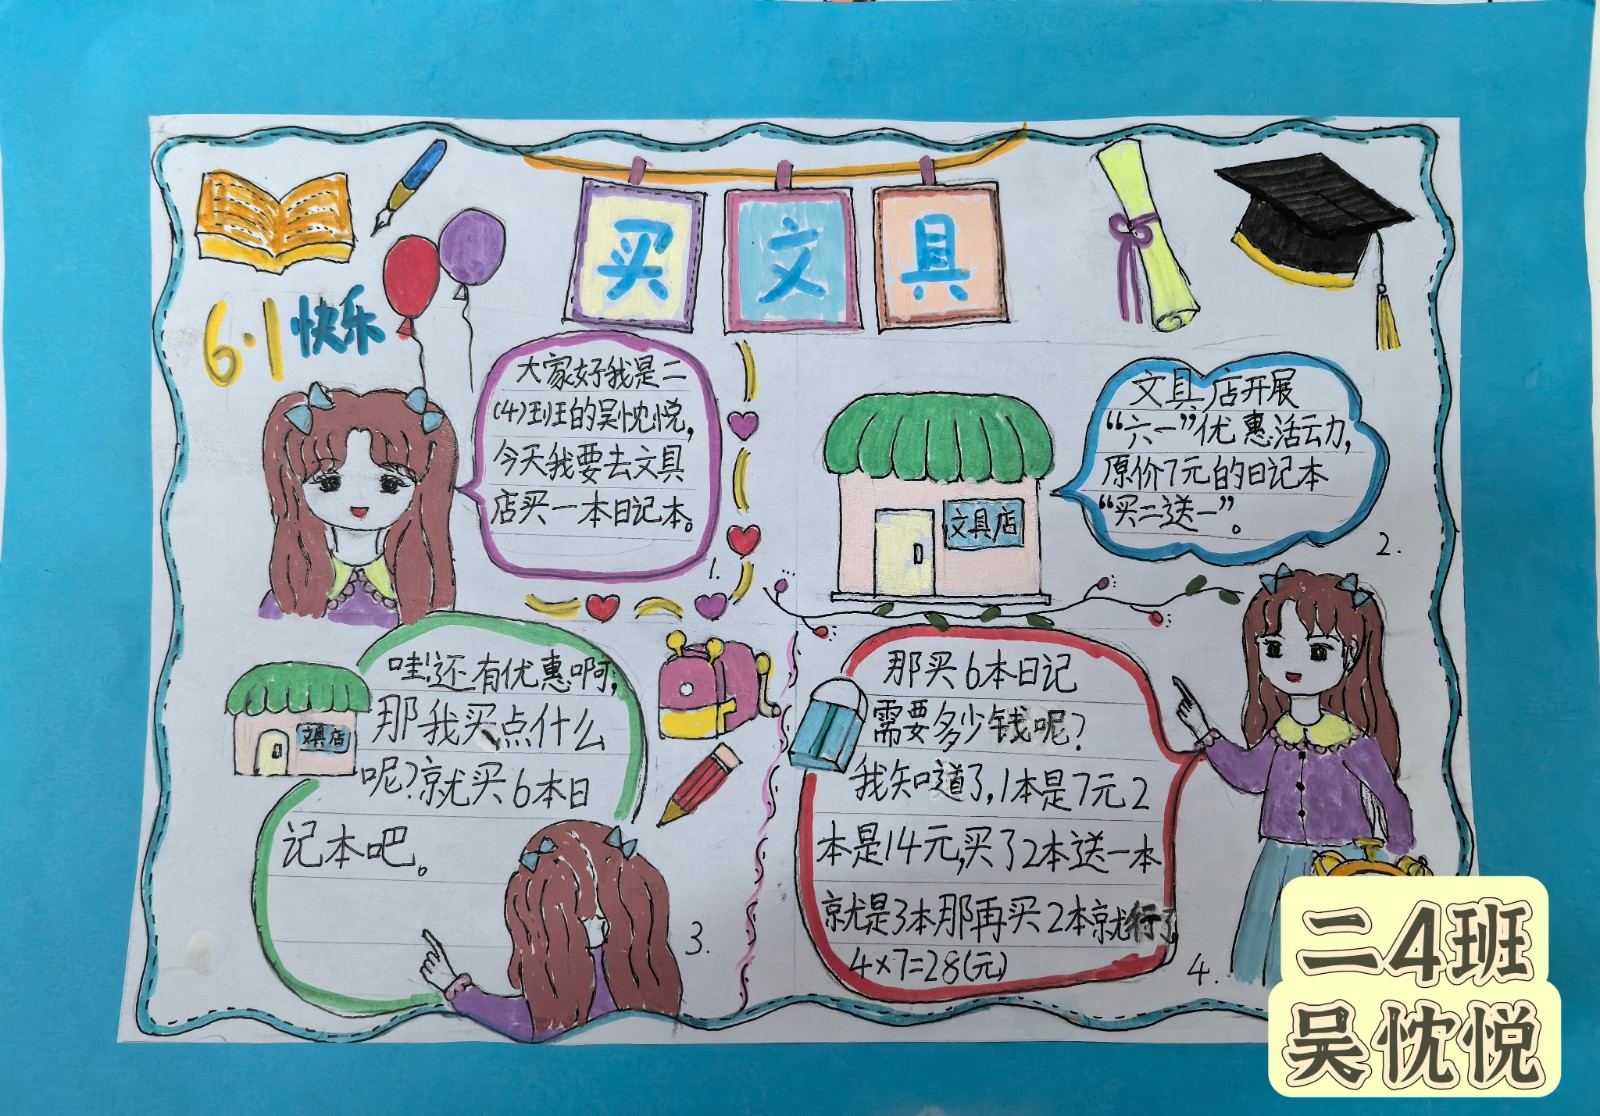 买文具
6·1快乐
大家好我是二
(4)班的吴忱悦,
今天我要去文具
店买一本日记本。
1.
文具店
文具店开展
“六一”优惠活动,
原价7元的日记本
“买二送一”。
2.
文具店
哇!还有优惠啊,
那我买点什么
呢?就买6本日
记本吧。
3.
那买6本日记
需要多少钱呢?
我知道了,1本是7元2
本是14元,买了2本送一本
就是3本那再买2本就行了
4×7=28(元)
4.
二4班
吴忱悦